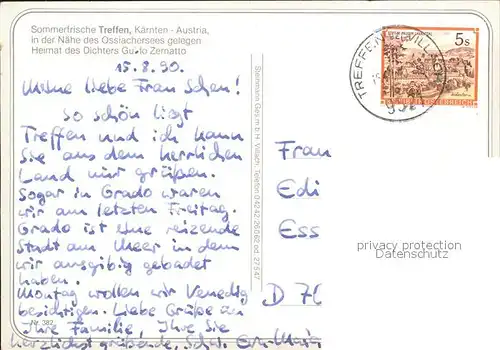 Sommerfrische Treffen, Kärnten - Austria,
in der Nähe des Ossiachersees gelegen
Heimat des Dichters Guido Zernatto
15.8.90.
Meine liebe Frau Schen!
So schön liegt
Treffen und ich kann
Sie aus dem herrlichen
Land nur grüßen.
Sogar in Grado waren
wir am letzten Freitag.
Grado ist eine reizende
Stadt am Meer in dem
wir ausgibig gebadet
haben.
Montag wollen wir Venedig
besichtigen. Liebe Grüße an
Ihre Familie, Ihre Sie
herzlichst grüßende, Schw. Eva-Maria
Nr. 382
Steinmann Ges.m.b.H. Villach, Telefon 04242-26062 od. 27547
TREFFEN BEI VILLACH
5s
REPUBLIK ÖSTERREICH
Frau
Edi
Ess
D 70
privacy protection
Datenschutz